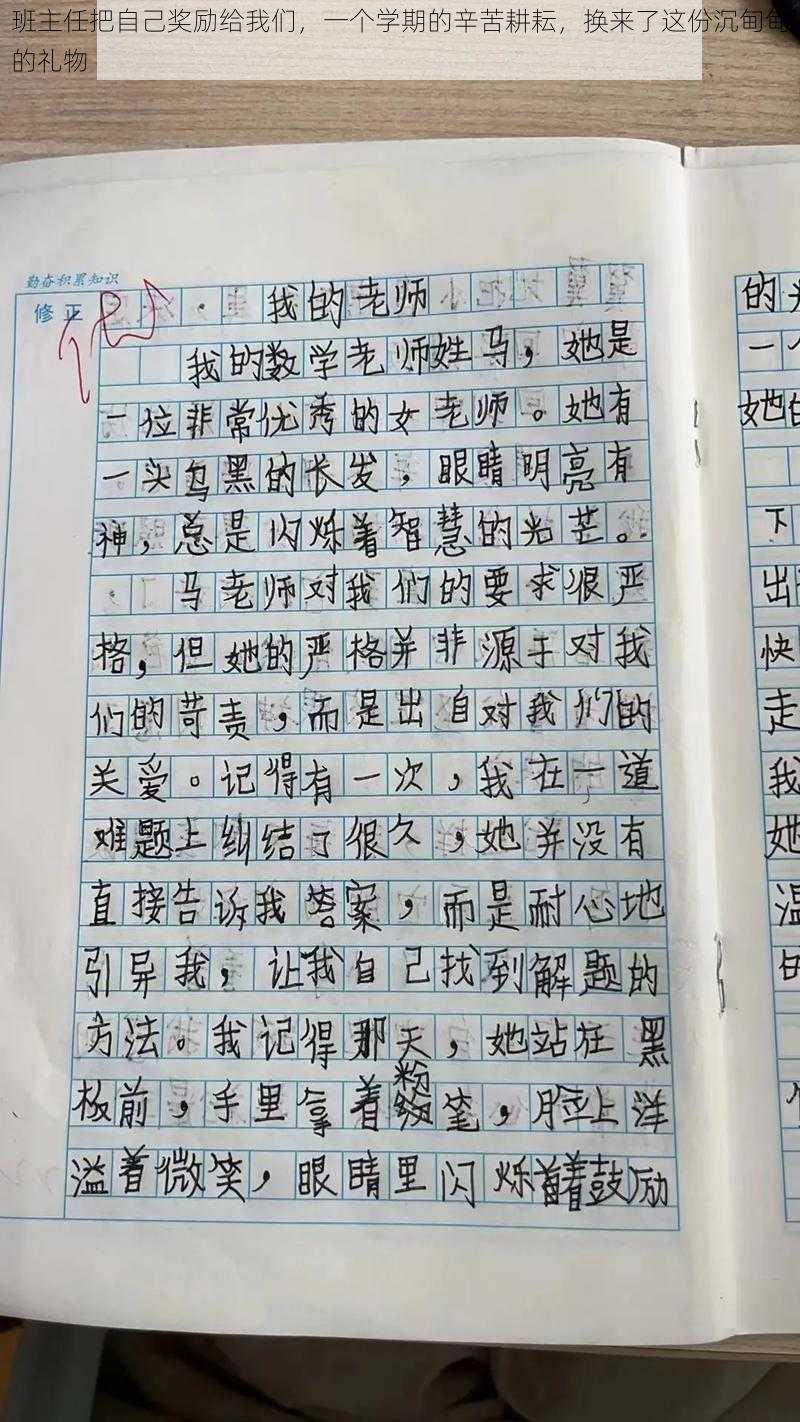 班主任把自己奖励给我们，一个学期的辛苦耕耘，换来了这份沉甸甸
的礼物
勤奋积累知识
修正
我的老师
我的数学老师姓马，她是
一位非常优秀的女老师。她有
一头乌黑的长发，眼睛明亮有
神，总是闪烁着智慧的光芒。
马老师对我们的要求很严
格，但她的严格并非源于对我
们的苛责，而是出自对我们的
关爱。记得有一次，我在一道
难题上纠结了很久，她并没有
直接告诉我答案，而是耐心地
引导我，让我自己找到解题的
方法。我记得那天，她站在黑
板前，手里拿着粉笔，脸上洋
溢着微笑，眼睛里闪烁着鼓励
的
一个
她的
下
出
快
走
我
她
温
的